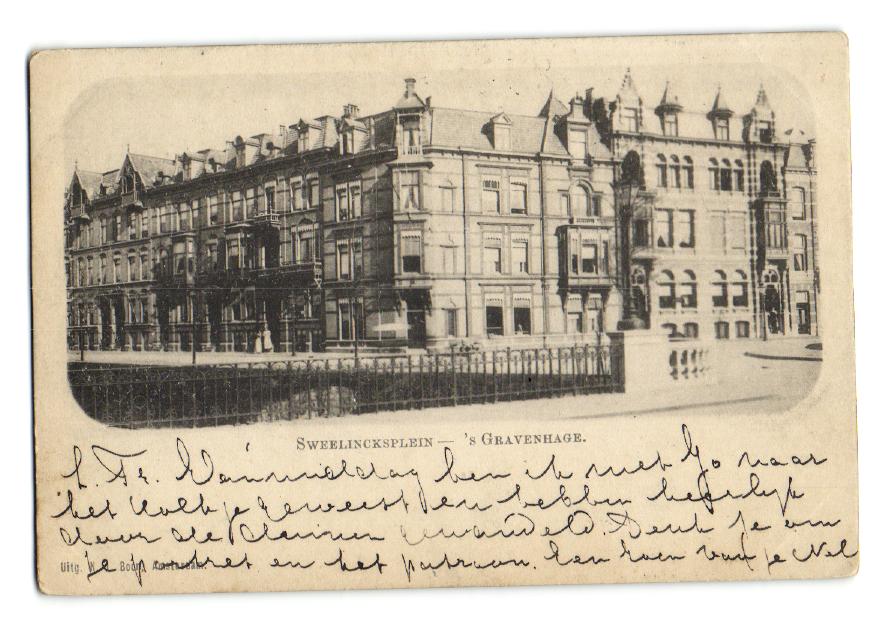 SWEELINCKSPLEIN — 's GRAVENHAGE.
L. Fr. Van middag ben ik met Jo naar
het Kolkje geweest en hebben heerlijk
door de duinen gewandeld. Denk je om
je portret en het patroon. Een zoen van je Nel
Uitg. Boon, Amsterdam.